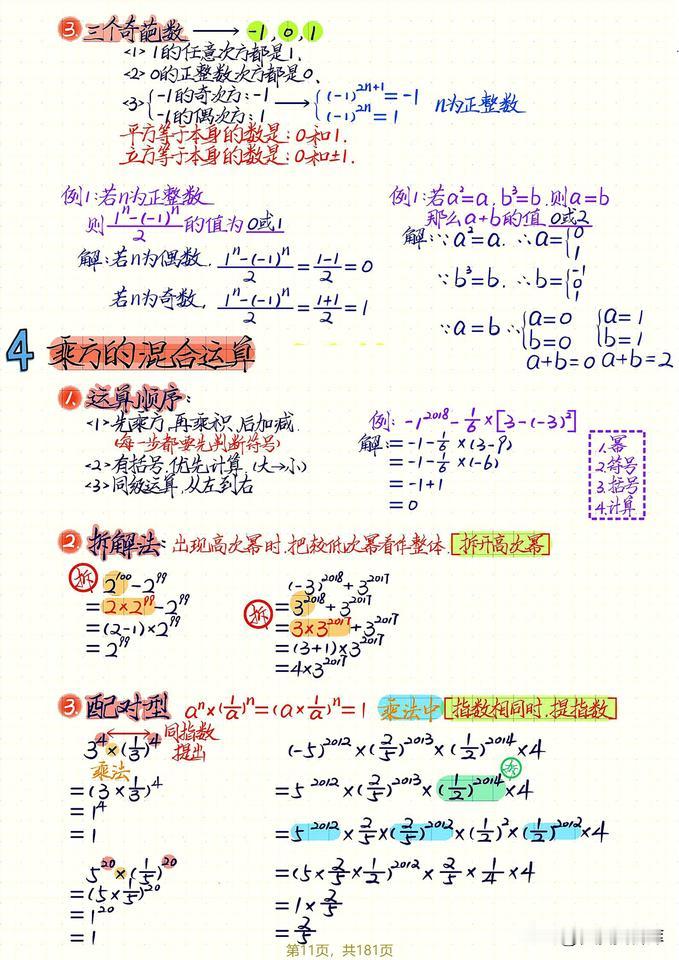 3. 三个奇葩数 → -1, 0, 1
<1> 1的任意次方都是1.
<2> 0的正整数次方都是0.
<3> { -1的奇次方: -1 → { (-1)²ⁿ⁺¹ = -1 n为正整数
-1的偶次方: 1 (-1)²ⁿ = 1
平方等于本身的数是: 0和1.
立方等于本身的数是: 0和±1.
例1: 若n为正整数
则 (1ⁿ-(-1)ⁿ)/2 的值为 0或1
解: 若n为偶数, (1ⁿ-(-1)ⁿ)/2 = (1-1)/2 = 0
若n为奇数, (1ⁿ-(-1)ⁿ)/2 = (1+1)/2 = 1
例1: 若a²=a, b³=b, 则a=b
那么a+b的值 0或2
解: ∵a²=a. ∴a={0
1
∵b³=b. ∴b={-1
0
1
∵a=b ∴{a=0 {a=1
b=0 b=1
a+b=0 a+b=2
4 乘方的混合运算
1. 运算顺序:
<1> 先乘方, 再乘积, 后加减.
(每一步都要先判断符号)
<2> 有括号, 优先计算, (大→小)
<3> 同级运算, 从左到右
例: -1²⁰¹⁸ - 1/6 × [3-(-3)²]
解: = -1 - 1/6 × (3-9)
= -1 - 1/6 × (-6)
= -1+1
= 0
1.幂
2.符号
3.括号
4.计算
2. 拆解法: 出现高次幂时, 把较低次幂看作整体. 拆开高次幂
拆 2¹⁰⁰ - 2⁹⁹
= 2×2⁹⁹ - 2⁹⁹
= (2-1)×2⁹⁹
= 2⁹⁹
(-3)²⁰¹⁸ + 3²⁰¹⁷
拆 = 3²⁰¹⁸ + 3²⁰¹⁷
= 3×3²⁰¹⁷ + 3²⁰¹⁷
= (3+1)×3²⁰¹⁷
= 4×3²⁰¹⁷
3. 配对型 aⁿ×(1/a)ⁿ = (a×1/a)ⁿ = 1 乘法中 指数相同时, 提指数
3⁴×(1/3)⁴ 同指数
提出
乘法
= (3×1/3)⁴
= 1⁴
= 1
5²⁰×(1/5)²⁰
= (5×1/5)²⁰
= 1²⁰
= 1
(-5)²⁰¹²×(2/5)²⁰¹³×(1/2)²⁰¹⁴×4
拆
= 5²⁰¹²×(2/5)²⁰¹³×(1/2)²⁰¹⁴×4
= 5²⁰¹²×2/5×(2/5)²⁰¹²×(1/2)²×(1/2)²⁰¹²×4
= (5×2/5×1/2)²⁰¹²×2/5×1/4×4
= 1×2/5
= 2/5
第11页，共181页